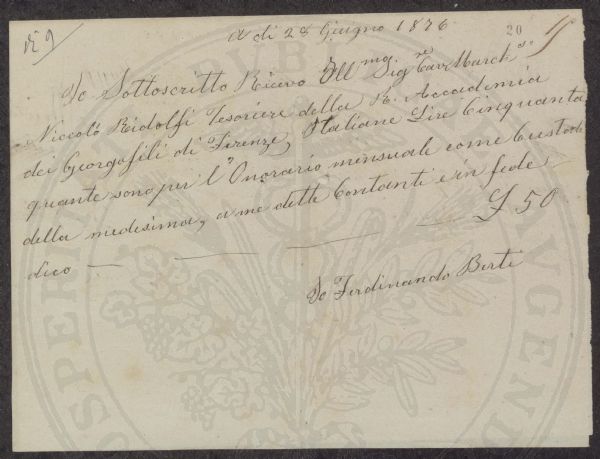 di 9
A di 28 Giugno 1876
20
Io Sottoscritto Ricevo Ill.mo Sig.re Cav. March.se
Niccolò Ridolfi Tesoriere della R. Accademia
dei Georgofili di Firenze, Italiane Lire Cinquanta
quante sono per l'Onorario mensuale come Custode
della medesima, a me detti Contanti e in fede
dico — — — — £ 50
Io Ferdinando Berti
PROSPERITATI AUGENDAE